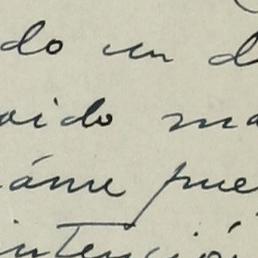 do un d
oido ma
áme pue
intención